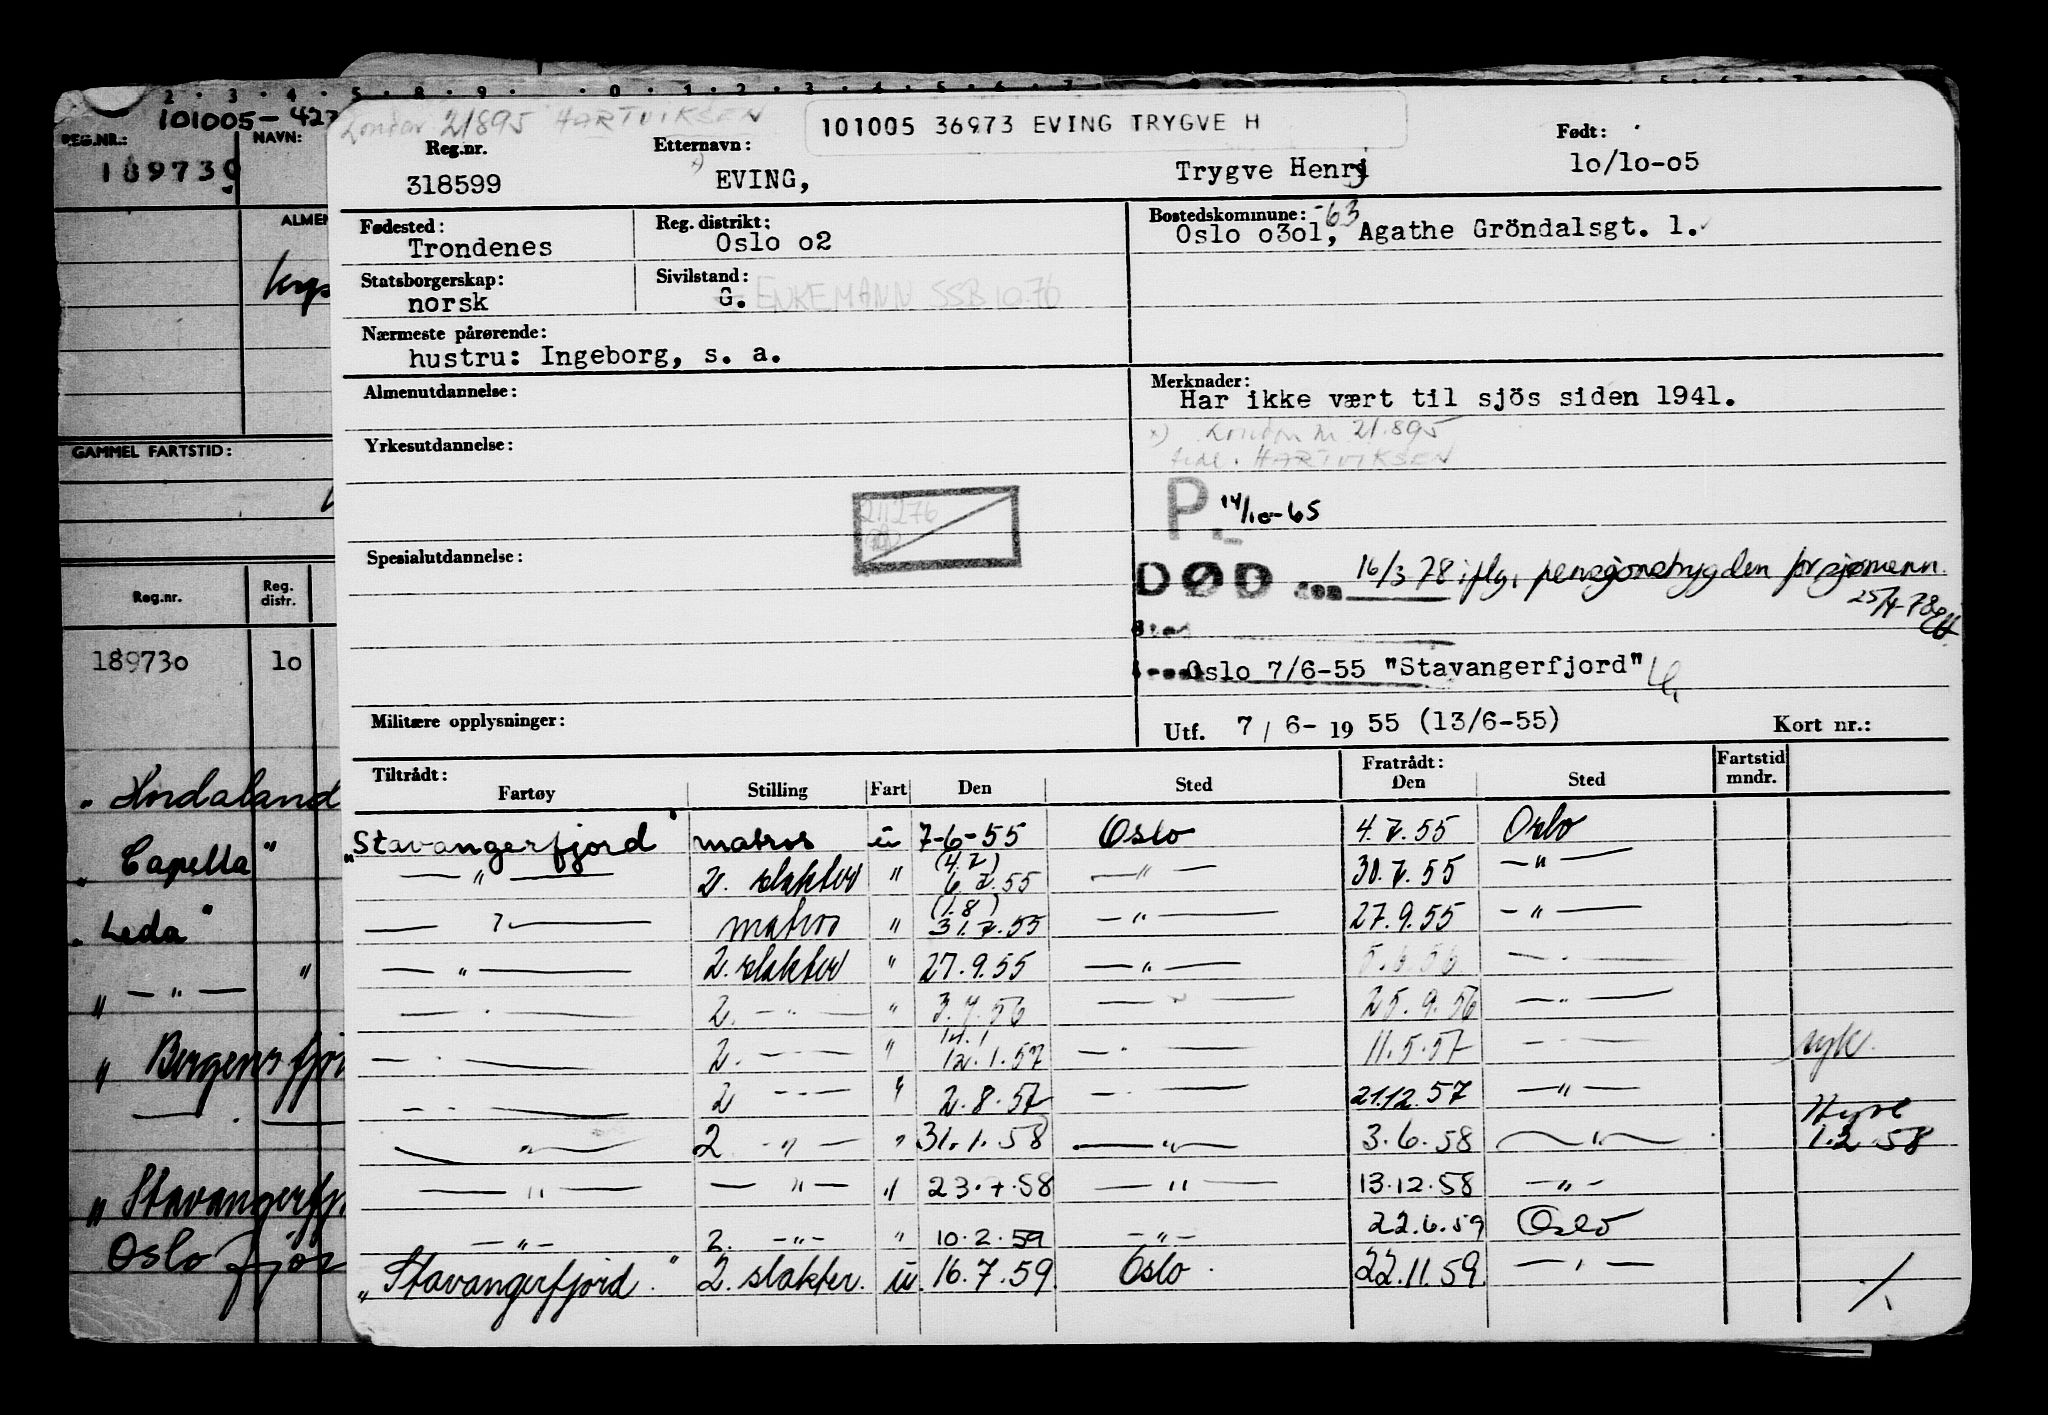 2 · 3 · 4 · 5 · 8 · 9 · 0 1 2 3 4 5 6 7
101005-42
REG.NR.: NAVN:
189730
ALMEN
GAMMEL FARTSTID:
Reg.nr. Reg. distr.
189730 10
"Hordaland
"Capella"
"Leda"
" — " — "
" Bergensfjo
— . —
" Stavangerfj
Oslofjor
London 21895 HARTVIKSEN
101005 36973 EVING TRYGVE H
Reg.nr. Etternavn: Født:
318599 x) EVING, Trygve Henrj 10/10-05
Fødested: Reg. distrikt: Bostedskommune: -63
Trondenes Oslo o2 Oslo o3ol, Agathe Gröndalsgt. 1.
Statsborgerskap: Sivilstand:
norsk G. ENKEMANN SSB 10.76
Nærmeste pårørende:
hustru: Ingeborg, s. a.
Almenutdannelse: Merknader:
Har ikke vært til sjös siden 1941.
x) London nr 21.895
Yrkesutdannelse: tidl. HARTVIKSEN
211276
P. 14/10-65
Spesialutdannelse:
DØD den 16/3 78 iflg. pensjonstrygden for sjømenn.
25/4-78
Sted
Oslo 7/6-55 "Stavangerfjord"
Militære opplysninger: Utf. 7 / 6- 19 55 (13/6-55) Kort nr.:
Tiltrådt: Fratrådt: Fartstid mndr.
Fartøy Stilling Fart Den Sted Den Sted
"Stavangerfjord" matros u 7-6-55 Oslo 4.7.55 Oslo
— " — 2. slakter " (4.7) 6.7.55 — " — 30.7.55 — " —
— " — matros " (1.8) 31.7.55 — " — 27.9.55 — " —
— " — 2. slakter " 27.9.55 — " — 5.6.56 — . —
— . — 2. — " — " 3.7.56 — " — 25.9.56 — " —
— . — 2. — — — " 14.1 12.1.57 — . — 11.5.57 — . — syk.
— . — 2 — — — " 2.8.57 — . — 21.12.57 — " —
— " — 2 — " — " 31.1.58 — " — 3.6.58 — " — Hyre 1.2.58
— " — — " — " 23.7.58 — " — 13.12.58 — " —
— " — 2. — " — " 10.2.59 — " — 22.6.59 Oslo
"Stavangerfjord." 2. slakter. u. 16.7.59. Oslo. 22.11.59 — " — ./.